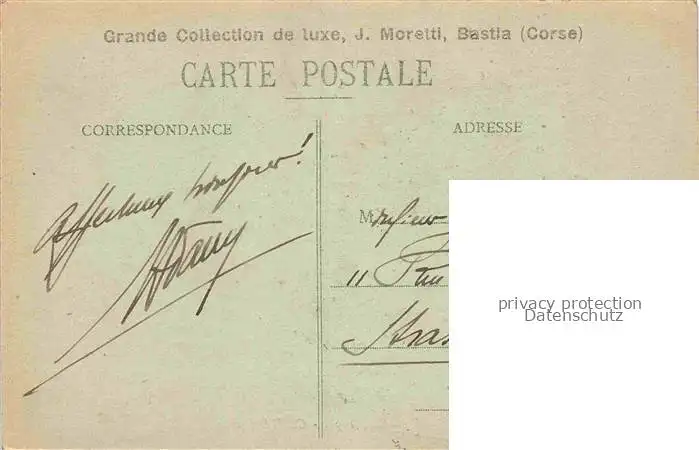 Grande Collection de luxe, J. Moretti, Bastia (Corse)
CARTE POSTALE
CORRESPONDANCE
ADRESSE
Affectueux bonjour!
Monsieur
11 Rue
Stras
privacy protection
Datenschutz